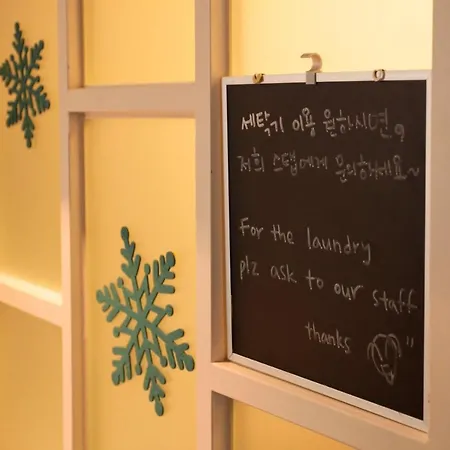 세탁기 이용 원하시면,
저희 스텝에게 문의하세요~
For the laundry
plz ask to our staff
thanks